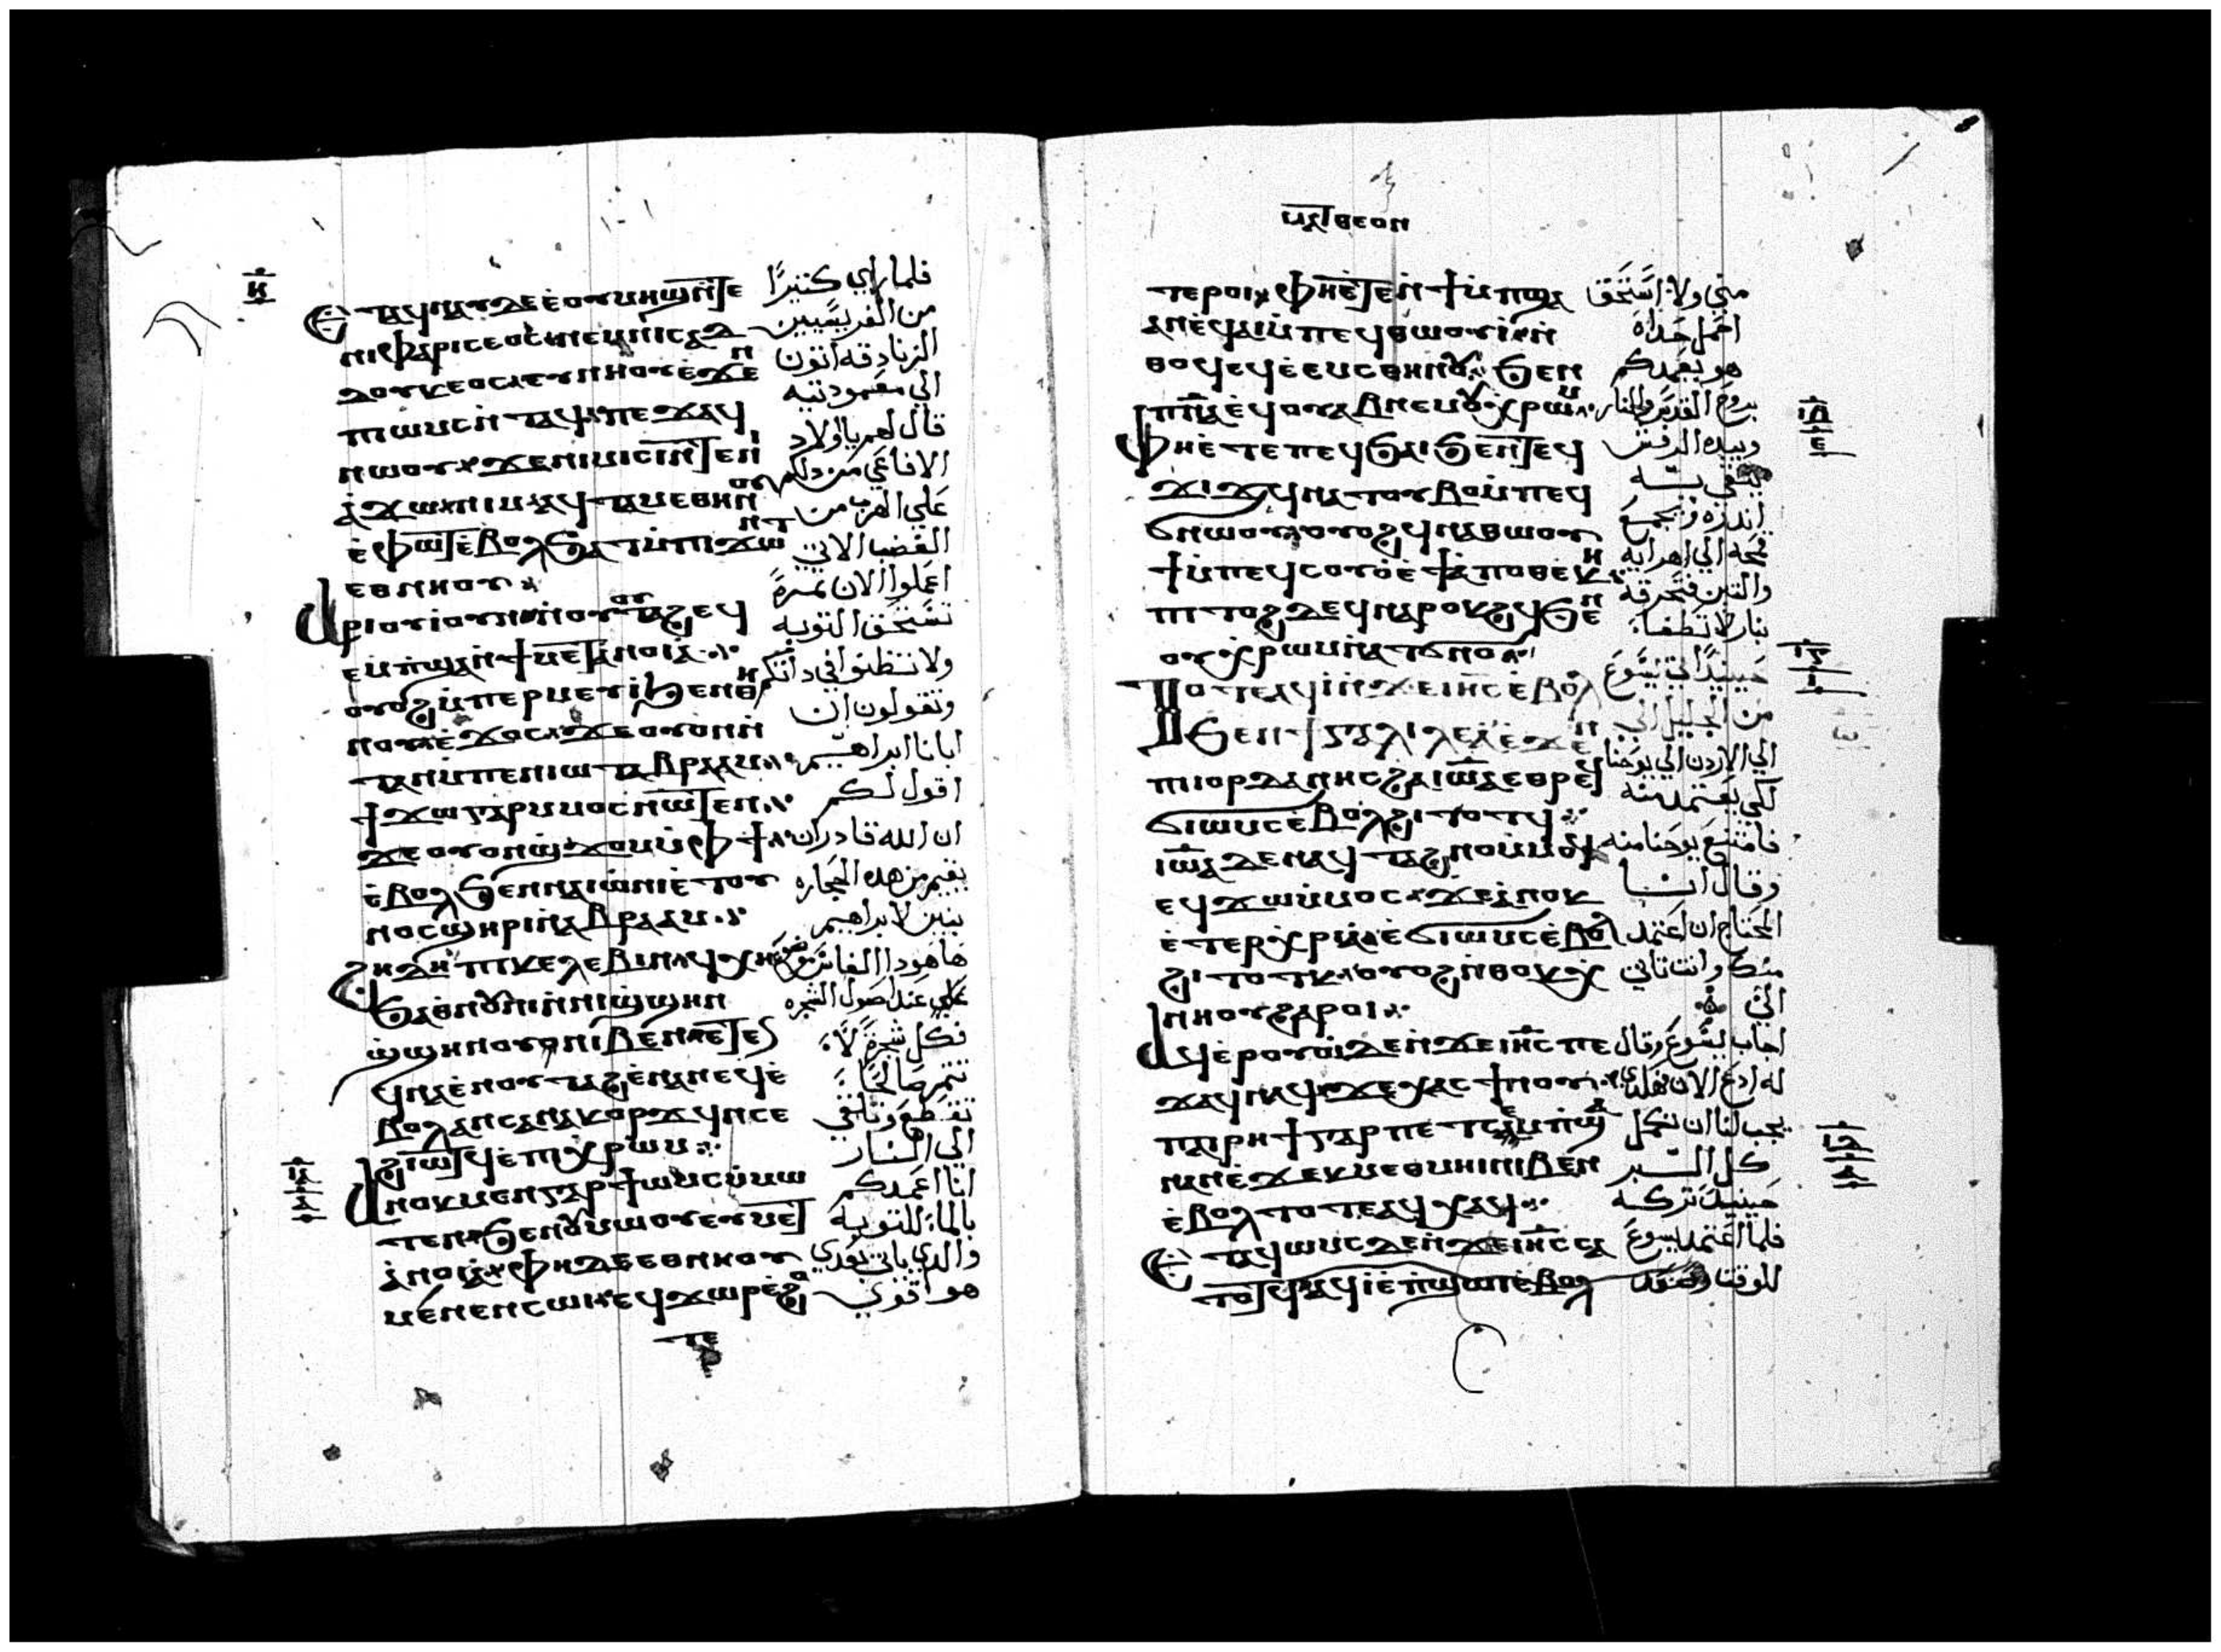 ⲕ
Ⲉⲧⲁϥⲛⲁⲩ ⲇⲉ ⲉⲟⲩⲙⲏϣ ⲛ̇ⲧⲉ
ⲛⲓⲫⲁⲣⲓⲥⲉⲟⲥ ⲛⲉⲙ ⲛⲓⲥⲁⲇ
ⲇⲟⲩⲕⲉⲟⲥ ⲉⲩⲛⲏⲟⲩ ⲉ̇ϫⲉⲛ
ⲡⲓⲱⲙⲥ ⲛ̇ⲧⲁϥ ⲡⲉϫⲁϥ
ⲛⲱⲟⲩ ϫⲉ ⲛⲓⲙⲓⲥⲓ ⲛ̇ⲧⲉ ⲛⲓ
ⲁ̇ϫⲱ ⲛⲓⲙ ⲁϥⲧⲁⲙⲉ ⲑⲏⲛⲟⲩ
ⲉ̇ⲫⲱⲧ ⲉ̇ⲃⲟⲗ ϧⲁ ⲙ̇ⲡⲓϫⲱⲛⲧ
ⲉⲑⲛⲏⲟⲩ
Ⲁⲣⲓⲟⲩⲓ ⲟⲩⲛ ⲛ̇ⲟⲩⲟⲩⲧⲁϩ ⲉϥ
ⲉⲙⲡ̇ϣⲁ ⲛ̇ϯⲙⲉⲧⲁⲛⲟⲓⲁ
ⲟⲩⲟϩ ⲙ̇ⲡⲉⲣⲙⲉⲩⲓ ϧⲉⲛ ⲑⲏ
ⲛⲟⲩ ⲉ̇ϫⲟⲥ ϫⲉ ⲟⲩⲟⲛ ⲛ̇
ⲧⲁⲛ ⲙ̇ⲡⲉⲛⲓⲱⲧ ⲁⲃⲣⲁⲁⲙ
ϯϫⲱ ⲅⲁⲣ ⲙ̇ⲙⲟⲥ ⲛ̇ⲱⲧⲉⲛ
ϫⲉ ⲟⲩⲟⲛ ϣϫⲟⲙ ⲙ̇ⲫϯ
ⲉ̇ⲃⲟⲗ ϧⲉⲛ ⲛⲁⲓⲱ̇ⲛⲓ ⲉ̇ⲧⲟⲩ
ⲛⲟⲥ ϣⲏⲣⲓ ⲛ̇ⲁⲃⲣⲁⲁⲙ
Ϩⲏⲇⲏ ⲡⲓⲕⲉⲗⲉⲃⲓⲛ ϥⲭⲏ
ϧⲁ ⲑⲛⲟⲩⲛⲓ ⲛ̇ⲛⲓϣ̇ϣⲏⲛ
ϣ̇ϣⲏⲛ ⲟⲩⲛ ⲛⲓⲃⲉⲛ ⲉⲧⲉ
ϥⲛⲁⲉ̇ⲛ ⲟⲩⲧⲁϩ ⲉ̇ⲛⲁⲛⲉϥ ⲉ̇
ⲃⲟⲗ ⲁⲛ ⲥⲉⲛⲁⲕⲟⲣϫϥ ⲛⲥⲉ
ϩⲓⲧϥ ⲉ̇ⲡⲓⲭⲣⲱⲙ
Ⲁⲛⲟⲕ ⲙⲉⲛ ⲅⲁⲣ ϯⲱⲙⲥ ⲙ̇ⲙⲱ
ⲧⲉⲛ ϧⲉⲛ ⲟⲩⲙⲱⲟⲩ ⲉⲩⲙⲉⲧ
ⲁ̇ⲛⲟⲓⲁ ⲫⲏ ⲇⲉ ⲉⲑⲛⲏⲟⲩ
ⲙⲉⲛⲉⲛⲥⲱⲓ ϥϫⲱⲣ ⲉ̇ϩⲟ
ⲧⲉ
فلما راي كثيرًا
من الفريسيين
الزنادقه اتون
الي معموديته
قال لهم يا اولاد
الافاعي من دلكم
علي الهرب من
الغضب الاتي
اعملوا الان ثمرة
تستحق التوبه
ولا تظنوا في ذاتكم
وتقولون ان
ابانا ابراهيم
اقول لكم
ان الله قادر ان
يقيم من هذه الحجاره
بنين لابراهيم
ها هوذا الفاس موضوع
علي عند اصول الشجره
فكل شجرة لا
تثمر صالحا
تقطع وتلقي
الي النار
انا اعمدكم
بالماء للتوبه
والذي ياتي بعدي
هو اقوي
ⲙⲁⲧⲑⲉⲟⲛ
ⲧⲉⲣⲟⲓ ⲫⲏ ⲉ̇ⲧⲉⲛ̇ϯⲙ̇ⲡϣⲁ
ⲁⲛ ⲉ̇ϥⲁⲓ ⲙ̇ⲡⲉϥⲑⲱⲟⲩⲓ ⲛ̇
ⲑⲟϥ ⲉϥⲉ̇ⲉⲙⲥ ⲑⲏⲛⲟⲩ ϧⲉⲛ
ⲡⲓⲡⲛⲁ ⲉ̇ϥⲟⲩⲁⲃ ⲛⲉⲙ ⲟⲩⲭⲣⲱⲙ
Ⲫⲏ ⲉ̇ⲧⲉ ⲡⲉϥϧⲁⲓ ϧⲉⲛ ⲧⲉϥ
ϫⲓϫ ϥⲛⲁⲧⲟⲩⲃⲟ ⲙ̇ⲡⲉϥ
ϭⲛⲱⲟⲩ ⲟⲩⲟϩ ϥⲛⲁⲑⲱⲟⲩ
ϯ ⲙ̇ⲡⲉϥⲥⲟⲩⲟ ⲉ̇ϯⲁ̇ⲡⲟⲑⲏⲕⲏ
ⲡⲓⲧⲟϩ ⲇⲉ ϥⲛⲁⲣⲟⲕϩϥ ϧⲉⲛ
ⲟⲩⲭⲣⲱⲙ ⲛ̇ⲁⲧϭⲛⲟ
Ⲧⲟⲧⲉ ⲁϥⲓ̇ ⲛ̇ϫⲉ ⲓⲏⲥ ⲉ̇ⲃⲟⲗ
ϧⲉⲛ ϯⲅⲁⲗⲓⲗⲉⲁ ⲉ̇ϫⲉⲛ
ⲡⲓⲓⲟⲣⲇⲁⲛⲏⲥ ϩⲁ ⲓⲱⲁ ⲉⲑⲣⲉϥ
ϭⲓⲱⲙⲥ ⲉ̇ⲃⲟⲗ ϩⲓⲧⲟⲧϥ
ⲓⲱⲁ ⲇⲉ ⲛⲁϥⲧⲁϩⲛⲟ ⲙ̇ⲙⲟϥ
ⲉϥϫⲱ ⲙ̇ⲙⲟⲥ ϫⲉ ⲁⲛⲟⲕ
ⲉ̇ⲧⲉⲣⲭⲣⲓⲁ ⲉ̇ϭⲓⲱⲙⲥ ⲉ̇ⲃⲟⲗ
ϩⲓⲧⲟⲧⲕ ⲟⲩⲟϩ ⲛ̇ⲑⲟⲕ ⲭ
ⲛⲏⲟⲩ ϩⲁⲣⲟⲓ
Ⲁϥⲉⲣⲟⲩⲱ̇ ⲇⲉ ⲛ̇ϫⲉ ⲓⲏⲥ ⲡⲉ
ϫⲁϥ ⲛⲁϥ ϫⲉ ⲭⲁⲥ ϯⲛⲟⲩ
ⲡⲁⲓⲣⲏϯ ⲅⲁⲣ ⲡⲉⲧⲥⲉⲙ̇ⲡϣⲁ
ⲛⲁⲛ ⲉ̇ϫⲉⲕ ⲙⲉⲑⲙⲏⲓ ⲛⲓⲃⲉⲛ
ⲉ̇ⲃⲟⲗ ⲧⲟⲧⲉ ⲁϥⲭⲁϥ
Ⲉⲧⲁϥⲱⲙⲥ ⲇⲉ ⲛ̇ϫⲉ ⲓⲏⲥ ⲥⲁ
ⲧⲟⲧϥ ⲁϥⲓ̇ ⲉ̇ⲡϣⲱⲓ ⲉ̇ⲃⲟⲗ
مني ولا استحق
احمل حذاه
هو يعمدكم
بروح القدس والنار
وبيده الرفش
اندره ويجمع
قمحه الي اهرايه
والتبن فيحرقه
بنار لا تطفا
حينيذ اتي يسوع
من الجليل الي
الي الاردن الي يوحنا
لكي يعتمد منه
فامتنع يوحنا منه
وقال انا
المحتاج ان اعتمد
منك وانت تاتي
الي
اجاب يسوع وقال
له ادع الان هكذا
يجب لنا ان نكمل
كل البر
حينيذ تركه
فلما اعتمد يسوع
للوقت صعد